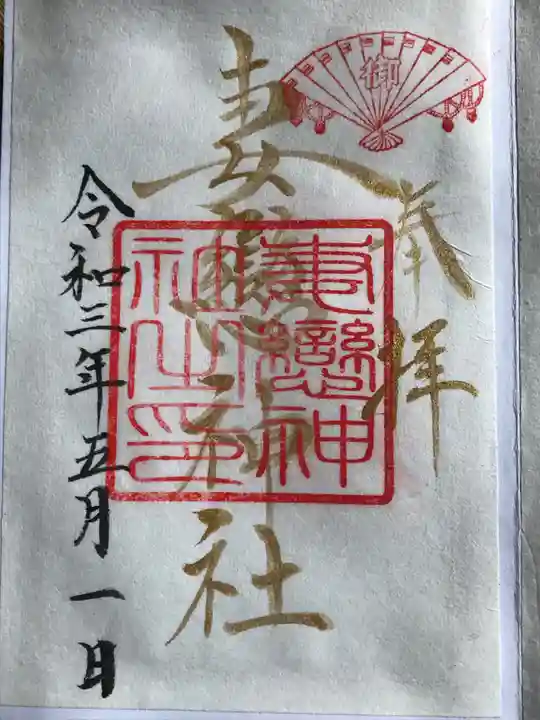 御
奉拝
妻戀神社
妻戀神
社之印
令和三年五月一日